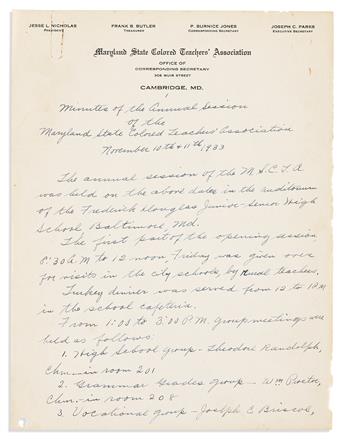 JESSE L. NICHOLAS
PRESIDENT
FRANK B. BUTLER
TREASURER
P. BURNICE JONES
CORRESPONDING SECRETARY
JOSEPH C. PARKS
EXECUTIVE SECRETARY
Maryland State Colored Teachers' Association
OFFICE OF
CORRESPONDING SECRETARY
308 MUIR STREET
CAMBRIDGE, MD.
Minutes of the Annual Session
of the
Maryland State Colored Teachers' Association
November 10th & 11th, 1933
The annual session of the M.S.C.T.A
was held on the above dates in the auditorium
of the Frederick Douglas Junior-Senior High
School, Baltimore, Md.
The first part of the opening session
8:30 A.M to 12 noon, Friday was given over
for visits in the City schools, by Rural teachers.
Turkey dinner was served from 12 to 1 P.M
in the school cafeteria.
From 1:00 to 3:00 P.M. group meetings were
held as follows:
1. High School group - Theodore Randolph,
Chm. - in room 201
2. Grammar Grades group - Wm Proctor,
Chm. - in room 208
3. Vocational group - Joseph C Briscoe,